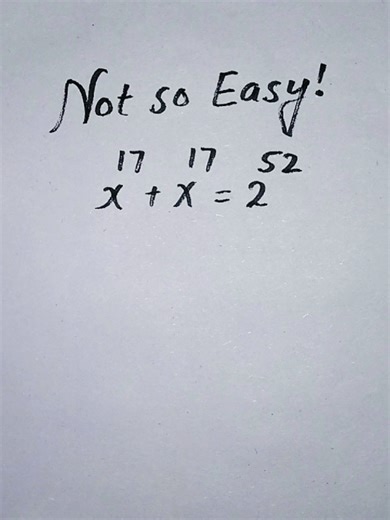 Not so Easy!
17 17 52
x + x = 2